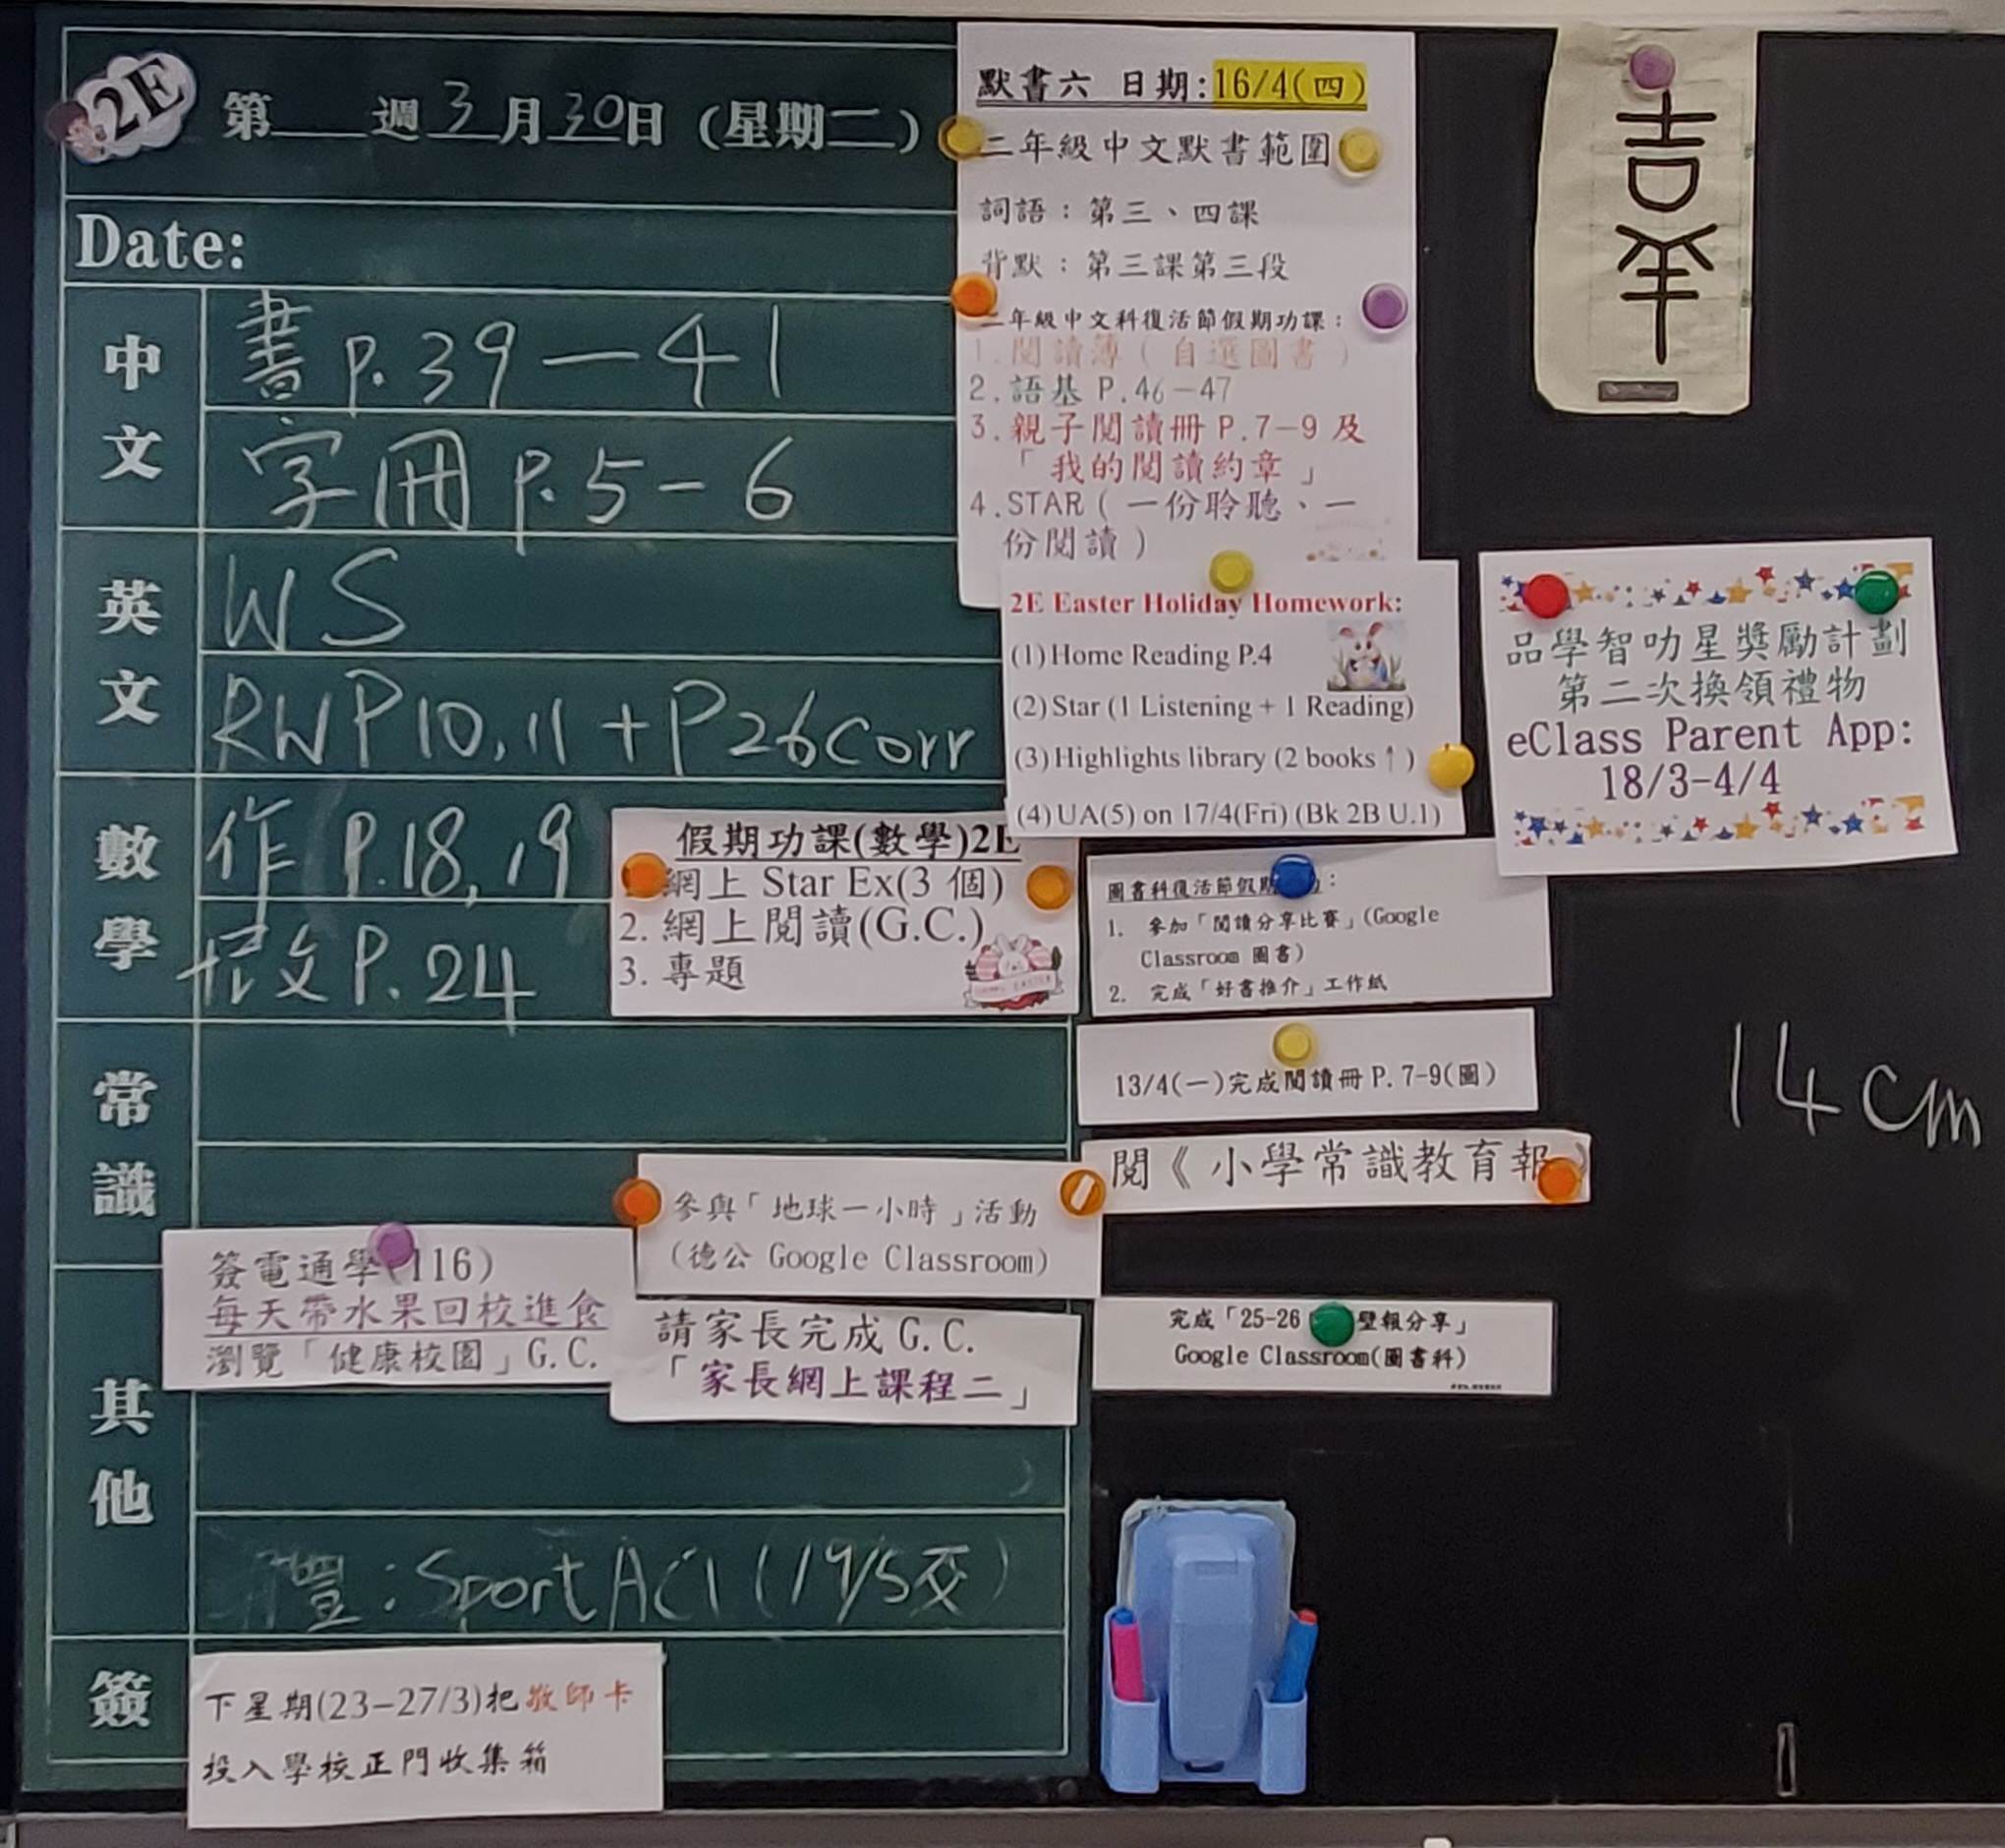 2E
第 週 3 月 30 日 (星期二)
Date:
中文
書 P. 39 — 41
字冊 P. 5 - 6
英文
WS
RWP10, 11 + P26 corr
數學
作 P.18, 19
P. 24
常識
其他
: Sport ACT (19/5交)
簽
默書六 日期:16/4(四)
二年級中文默書範圍
詞語：第三、四課
背默：第三課第三段
二年級中文科復活節假期功課：
1.閱讀簿（自選圖書）
2.語基 P.46-47
3.親子閱讀冊 P.7-9 及
「我的閱讀約章」
4.STAR（一份聆聽、一
份閱讀）
2E Easter Holiday Homework:
(1) Home Reading P.4
(2) Star (1 Listening + 1 Reading)
(3) Highlights library (2 books ↑ )
(4) UA(5) on 17/4(Fri) (Bk 2B U.1)
假期功課(數學)2E
網上 Star Ex(3 個)
2. 網上閱讀(G.C.)
3. 專題
圖書科復活節假期 :
1. 參加「閱讀分享比賽」(Google
Classroom 圖書)
2. 完成「好書推介」工作紙
13/4(一)完成閱讀冊 P. 7-9(圖)
閱《小學常識教育報》
參與「地球一小時」活動
(德公 Google Classroom)
簽電通學(116)
每天帶水果回校進食
瀏覽「健康校園」G.C.
請家長完成 G.C.
「家長網上課程二」
完成「25-26 壁報分享」
Google Classroom(圖書科)
下星期(23-27/3)把敬師卡
投入學校正門收集箱
吉羊
品學智叻星獎勵計劃
第二次換領禮物
eClass Parent App:
18/3-4/4
14 cm